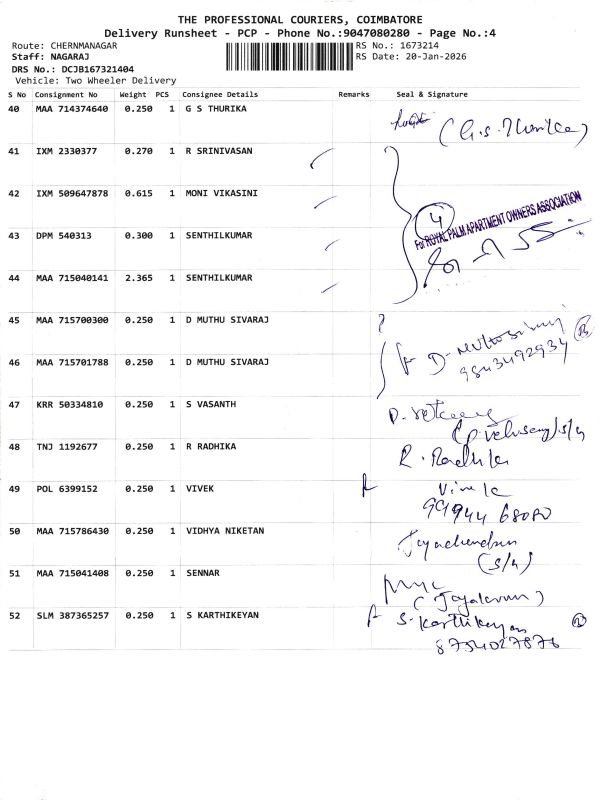 THE PROFESSIONAL COURIERS, COIMBATORE
Delivery Runsheet - PCP - Phone No.:9047080280 - Page No.:4
Route: CHERNMANAGAR RS No.: 1673214
Staff: NAGARAJ RS Date: 20-Jan-2026
DRS No.: DCJB167321404
Vehicle: Two Wheeler Delivery
S No Consignment No Weight PCS Consignee Details Remarks Seal & Signature
40 MAA 714374640 0.250 1 G S THURIKA
(G.S. Thurika)
41 IXM 2330377 0.270 1 R SRINIVASAN
42 IXM 509647878 0.615 1 MONI VIKASINI
4
For ROYAL PALM APARTMENT OWNERS ASSOCIATION
43 DPM 540313 0.300 1 SENTHILKUMAR
44 MAA 715040141 2.365 1 SENTHILKUMAR
45 MAA 715700300 0.250 1 D MUTHU SIVARAJ
46 MAA 715701788 0.250 1 D MUTHU SIVARAJ
9843492934
47 KRR 50334810 0.250 1 S VASANTH
48 TNJ 1192677 0.250 1 R RADHIKA
R. Radhika
49 POL 6399152 0.250 1 VIVEK
Vivek
99944 68080
50 MAA 715786430 0.250 1 VIDHYA NIKETAN
Jayachandran
(S/h)
51 MAA 715041408 0.250 1 SENNAR
52 SLM 387365257 0.250 1 S KARTHIKEYAN
S. Karthikeyan
8754027876